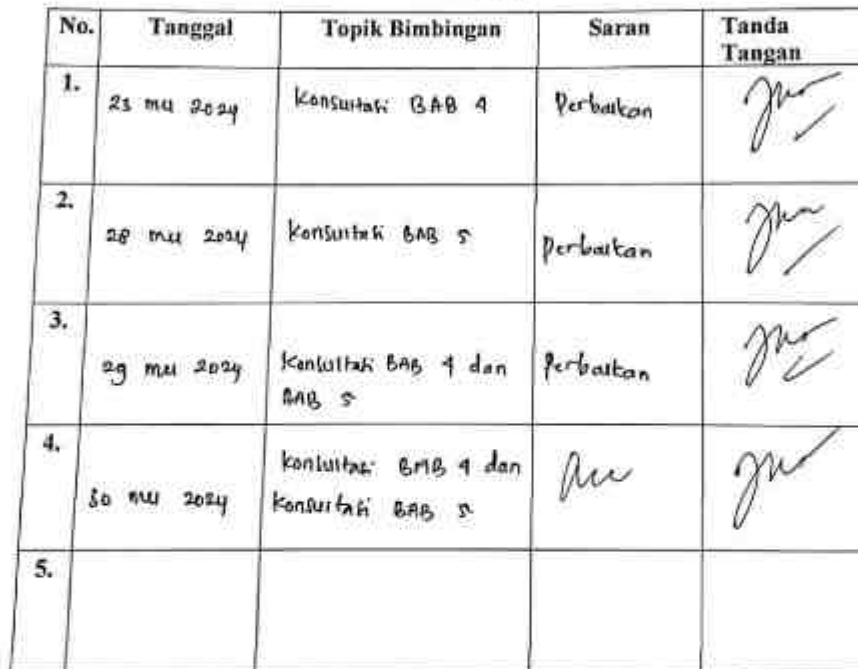 No. Tanggal Topik Bimbingan Saran Tanda
Tangan
1. 23 mei 2024 Konsultasi BAB 4 Perbaikan
2. 28 mei 2024 Konsultasi BAB 5 Perbaikan
3. 29 mei 2024 Konsultasi BAB 4 dan Perbaikan
BAB 5
4. 30 mei 2024 Konsultasi BAB 4 dan
Konsultasi BAB 5
5.